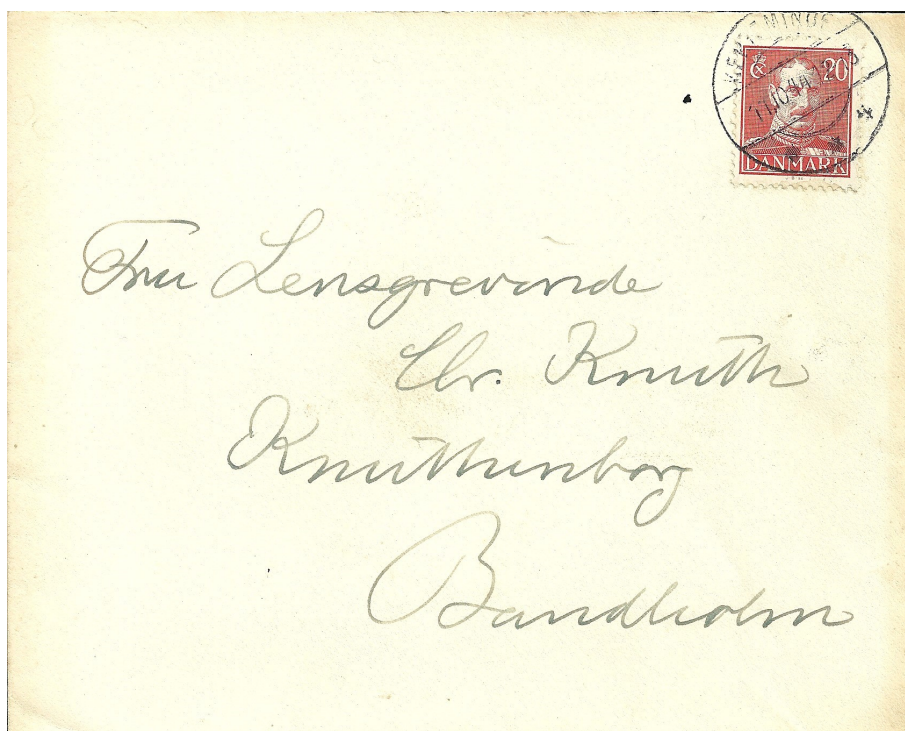 KERTEMINDE
20
DANMARK
Fru Lensgrevinde
Chr. Knuth
Knuthenborg
Bandholm